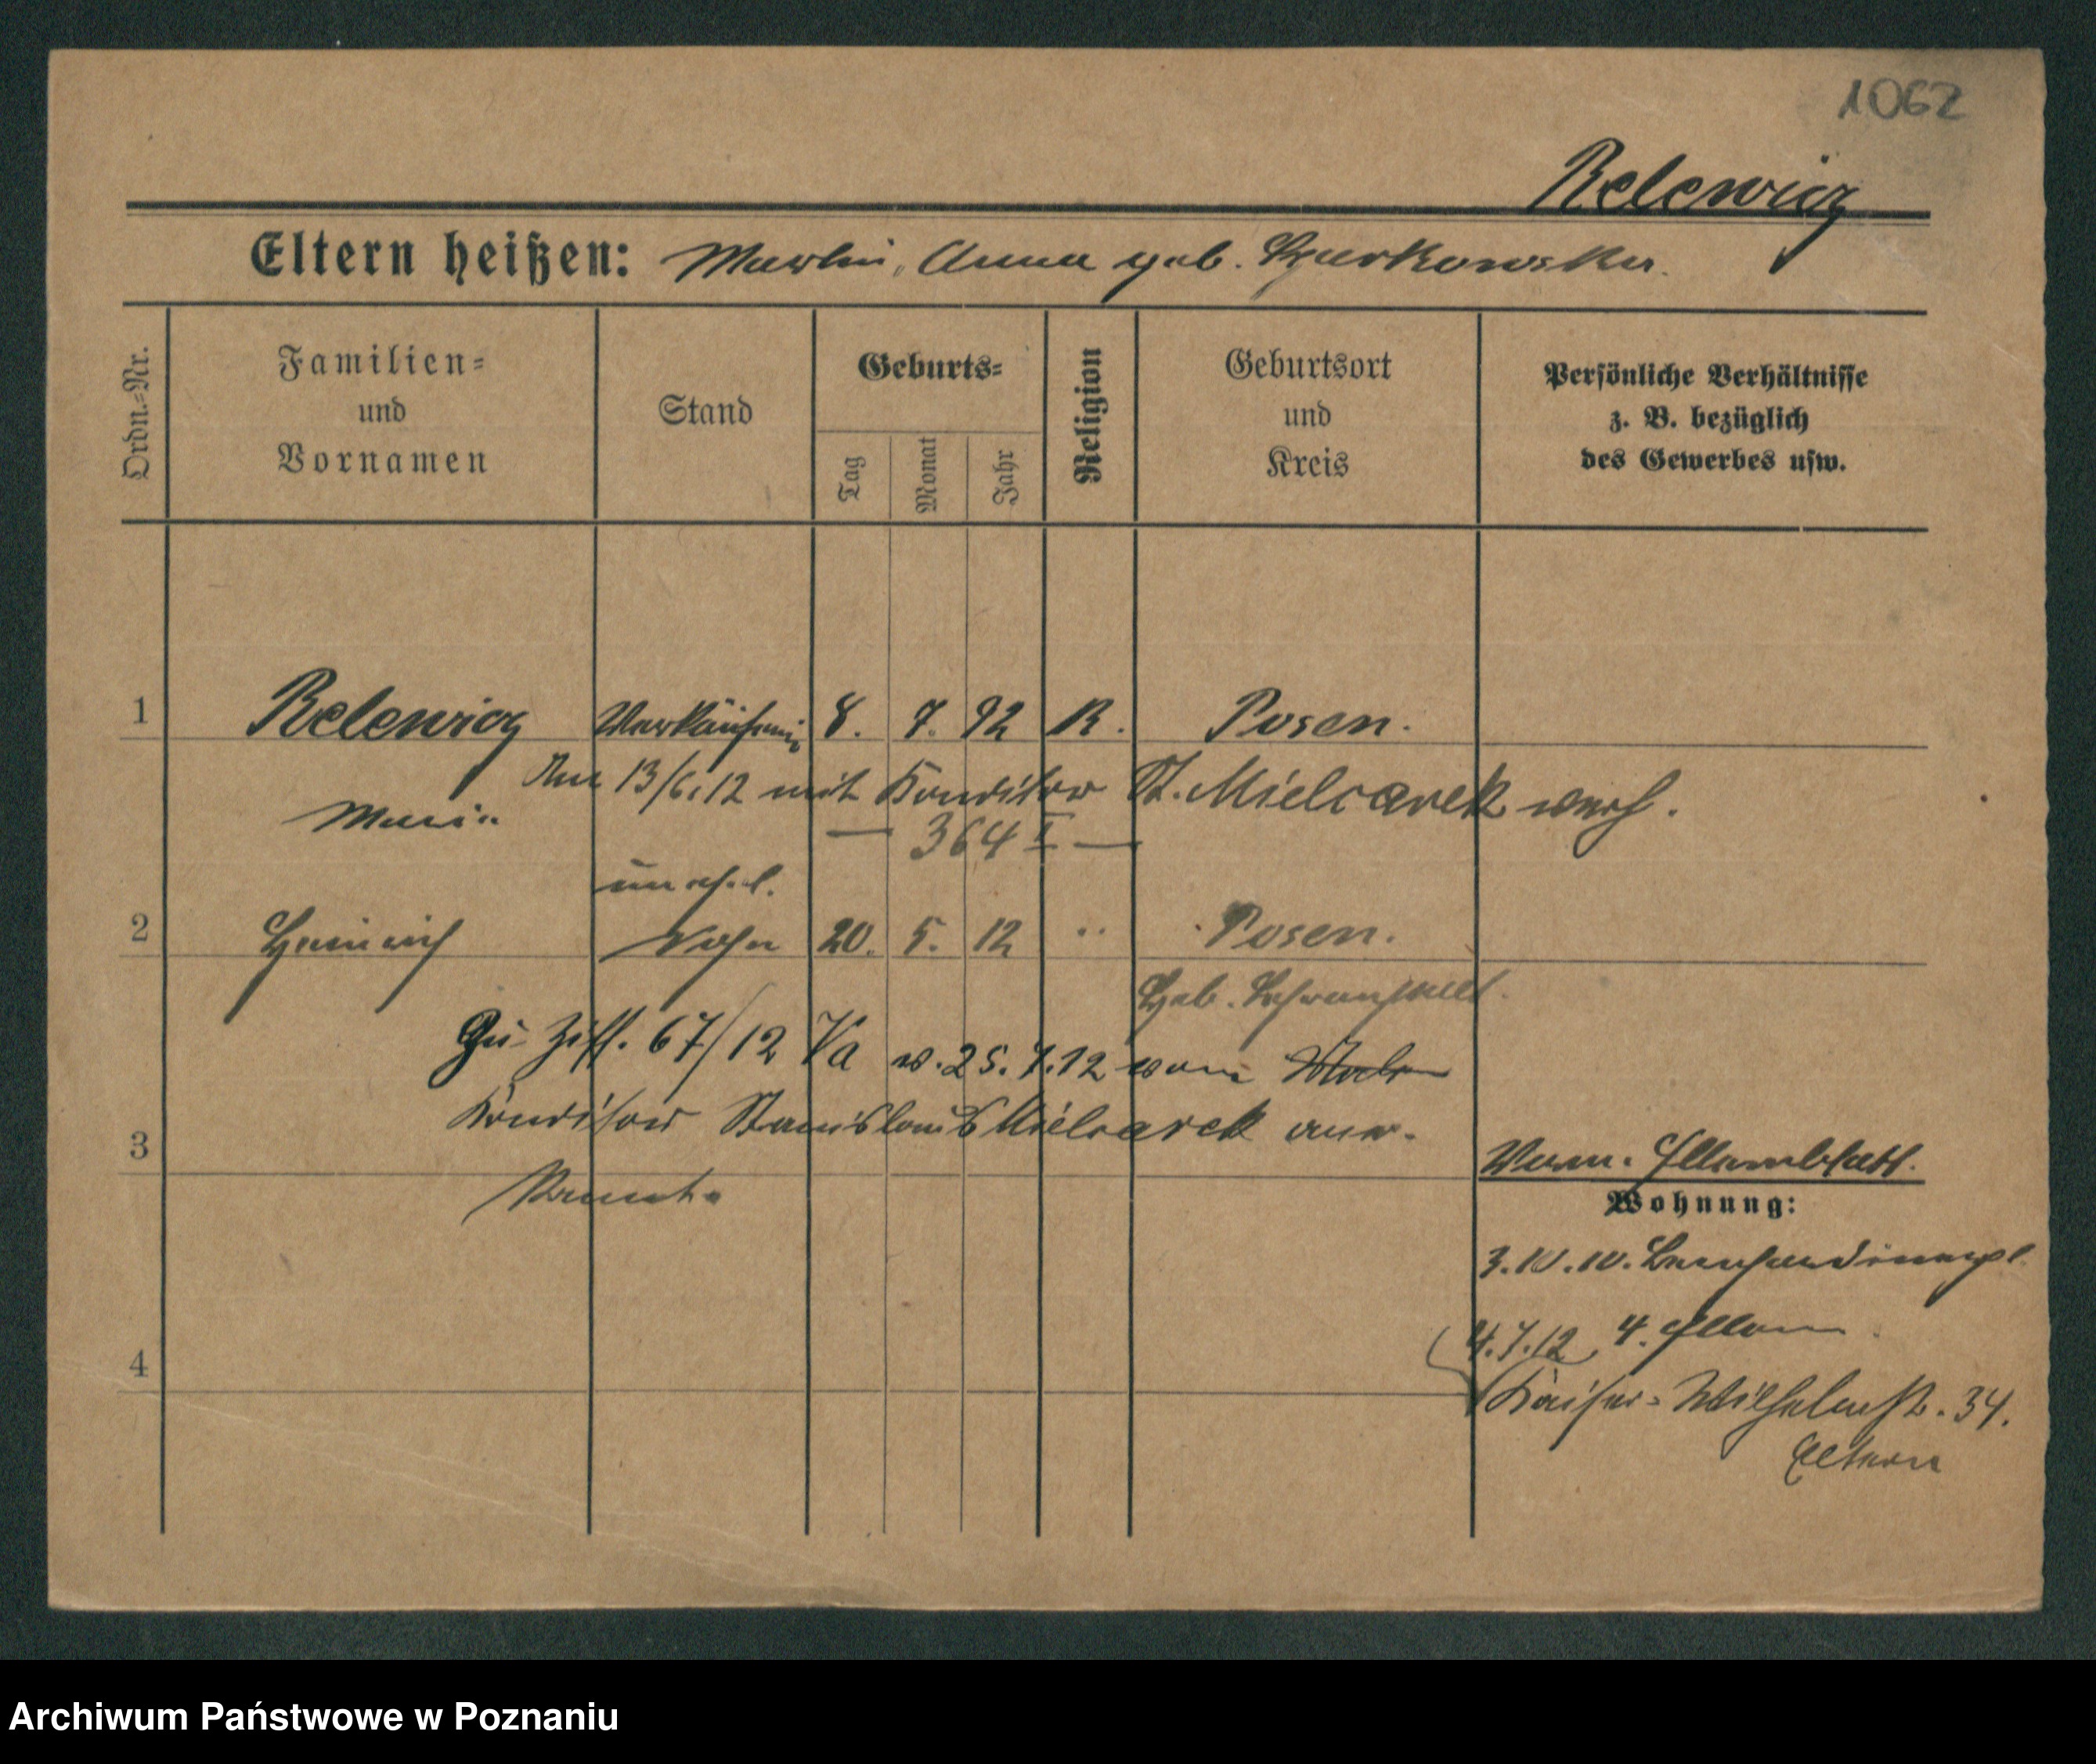 1062
Relewicz
Eltern heißen: Martin, Anna geb.
Ordn.-Nr.
Familien-
und
Vornamen
Stand
Geburts-
Tag
Monat
Jahr
Religion
Geburtsort
und
Kreis
Persönliche Verhältnisse
z. B. bezüglich
des Gewerbes usw.
1 Relewicz Verkäuferin 8. 7. 92 K. Posen.
Am 13/6.12 mit Konditor St. Mielcarek verh.
Maria
— 364 I —
unehel.
2 Heinrich Sohn 20. 5. 12 " Posen.
Geb.
Zu Ziff. 67/12 Va v. 25.7.12 vom
Konditor Stanislaus Mielcarek anerkannt.
3
Vorm. Elternblatt.
Wohnung:
3.10.10. Bernhardinerpl.
4. Eltern
4.7.12
Kaiser-Wilhelmstr. 34.
Eltern
4
Archiwum Państwowe w Poznaniu